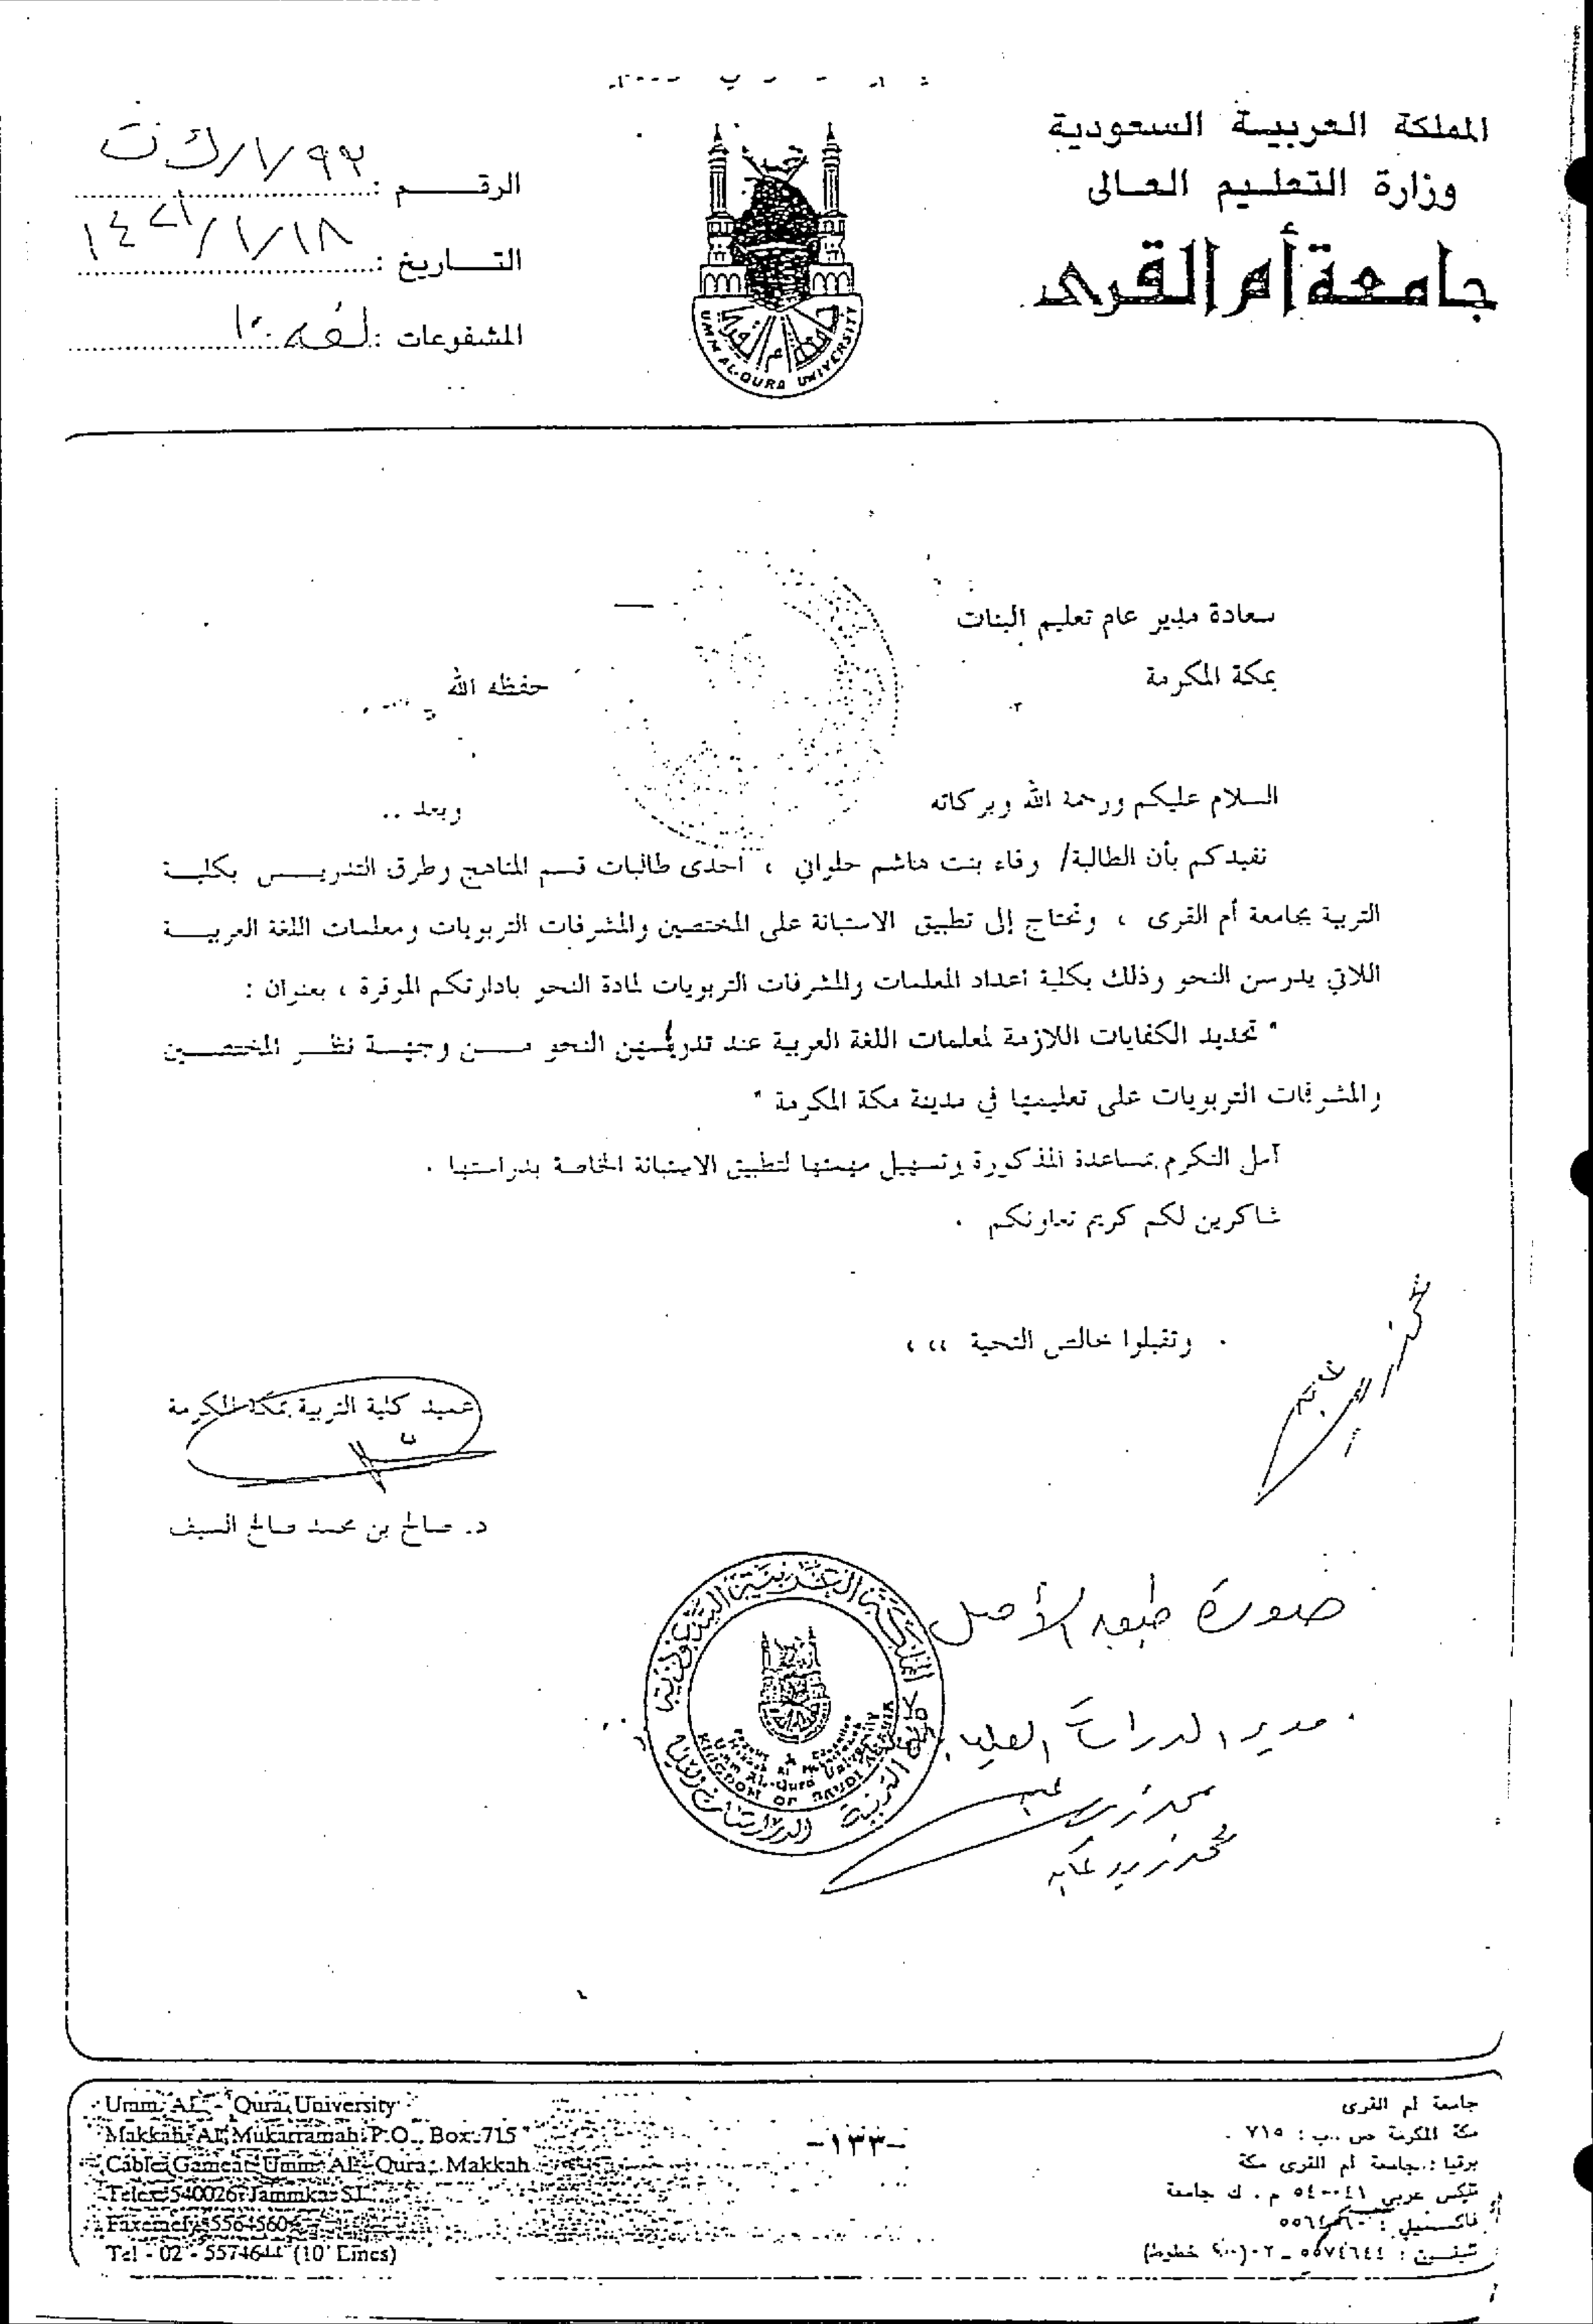 المملكة العربية السعودية
وزارة التعليم العالى
جامعة أم القرى
UMM AL-QURA UNIVERSITY
الرقم :
التاريخ : ١٤٢١/١/١٨
المشفوعات :
سعادة مدير عام تعليم البنات
بمكة المكرمة
حفظه الله
السلام عليكم ورحمة الله وبركاته وبعد ..
نفيدكم بأن الطالبة/ وفاء بنت هاشم حلواني ، احدى طالبات قسم المناهج وطرق التدريس بكلية
التربية بجامعة أم القرى ، وتحتاج إلى تطبيق الاستبانة على المختصين والمشرفات التربويات ومعلمات اللغة العربية
اللاتي يدرسن النحو وذلك بكلية اعداد المعلمات والمشرفات التربويات لمادة النحو بادارتكم الموقرة ، بعنوان :
" تحديد الكفايات اللازمة لمعلمات اللغة العربية عند النحو من وجهة نظر المختصين
والمشرفات التربويات على تعليمها في مدينة مكة المكرمة "
آمل التكرم بمساعدة المذكورة وتسهيل مهمتها لتطبيق الاستبانة الخاصة بدراستها .
شاكرين لكم كريم تعاونكم .
وتقبلوا خالص التحية ،،،
عميد كلية التربية بمكة المكرمة
د. صالح بن محمد صالح السيف
صورة طبق الأصل
مدير الدراسات العليا
المملكة العربية السعودية
Umm Al-Qura University
KINGDOM OF SAUDI ARABIA
Umm AL - Qura University
Makkah Al Mukarramah P.O. Box 715
Cable Gameat Umm Al - Qura, Makkah
Telex 540026 Jammka SJ
Faxemely 5564560
Tel - 02 - 5574644 (10 Lines)
-١٣٣-
جامعة أم القرى
مكة المكرمة ص . ب : ٧١٥
برقيا : جامعة أم القرى مكة
تلكس عربي ٥٤٠٠٤١ م . ك جامعة
فاكسميلي :
تليفون : ٥٥٧٤٦٤٤ - ٠٢ خطوط)